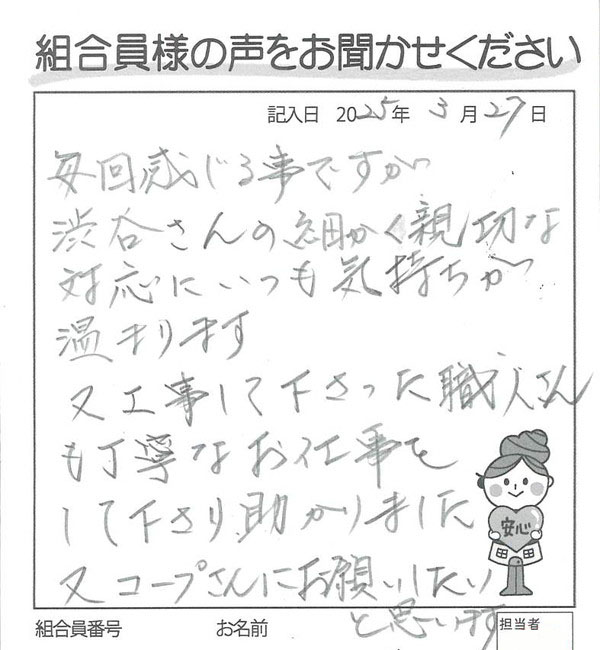 組合員様の声をお聞かせください
記入日 2025年 3月27日
毎回感じる事ですが
渋谷さんの細かく親切な
対応にいつも気持ちが
温まります
又工事して下さった職人さん
も丁寧なお仕事を
して下さり助かりました
又コープさんにお願いしたい
と思います
安心
組合員番号 お名前 担当者